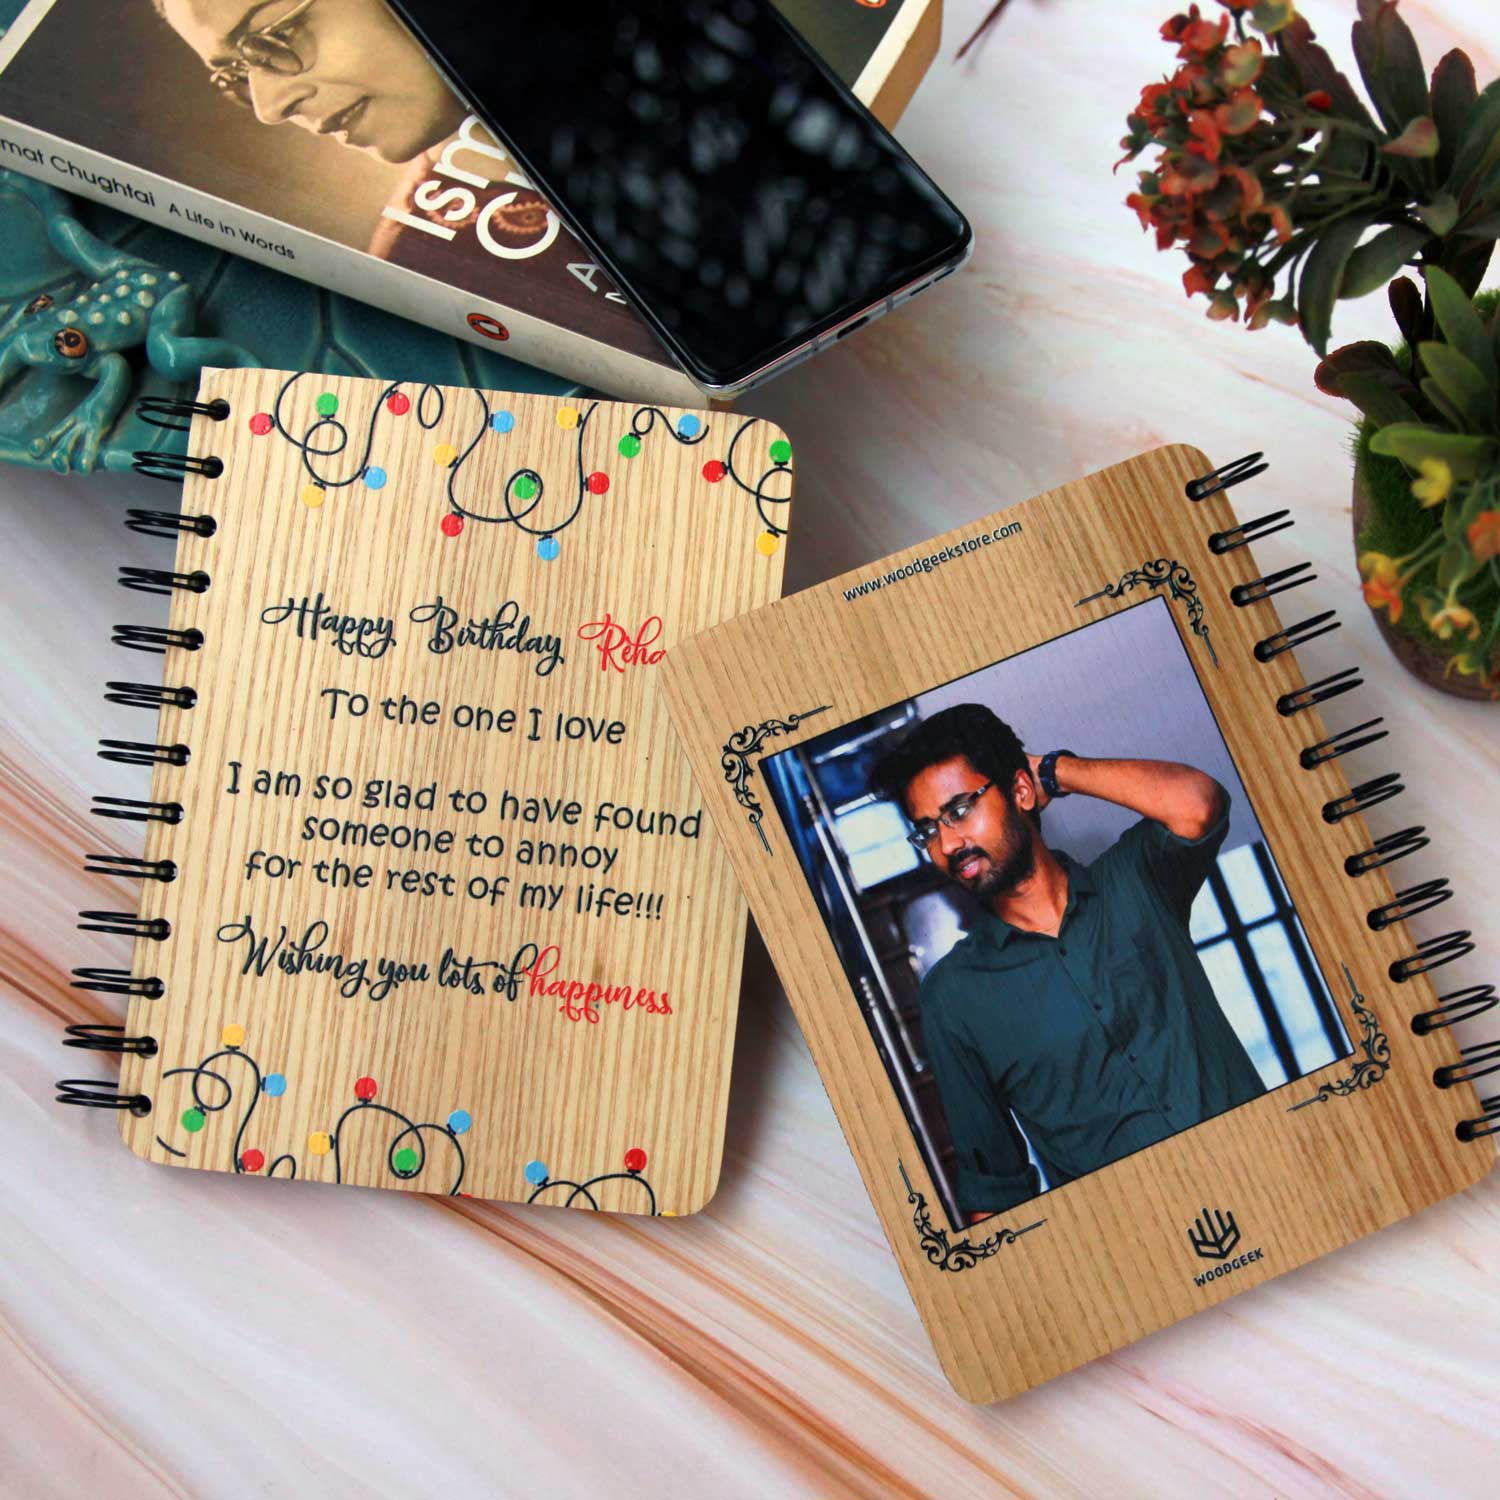 mat Chughtai A Life in Words
Ism
Happy Birthday
To the one I love
I am so glad to have found
someone to annoy
for the rest of my life!!!
Wishing you lots of happiness
www.woodgeekstore.com
WOODGEEK